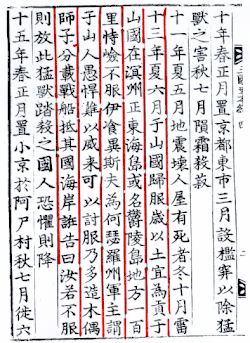 十年春正月置京都東市三月設檻穽以除猛
獸之害秋七月隕霜殺菽
十一年夏五月地震壞人屋有死者冬十月雷
十三年夏六月于山國歸服歲以土宜為貢于
山國在溟州正東海島或名欝陵島地方一百
里恃嶮不服伊飡異斯夫為何瑟羅州軍主謂
于山人愚悍難以威來可以計服乃多造木偶
師子分載戰船抵其國海岸誑告曰汝若不服
則放此猛獸踏殺之國人恐懼則降
十五年春正月置小京於阿尸村秋七月徙六